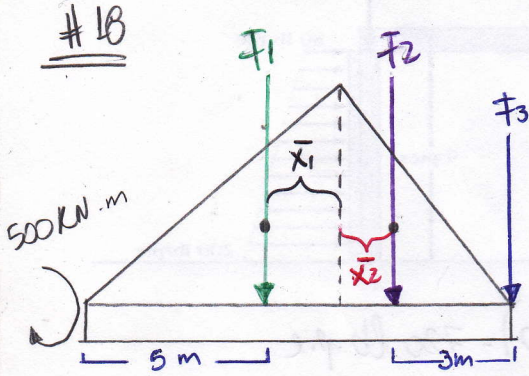 #18
F1
F2
F3
x̄1
500KN.m
x̄2
5 m
3m